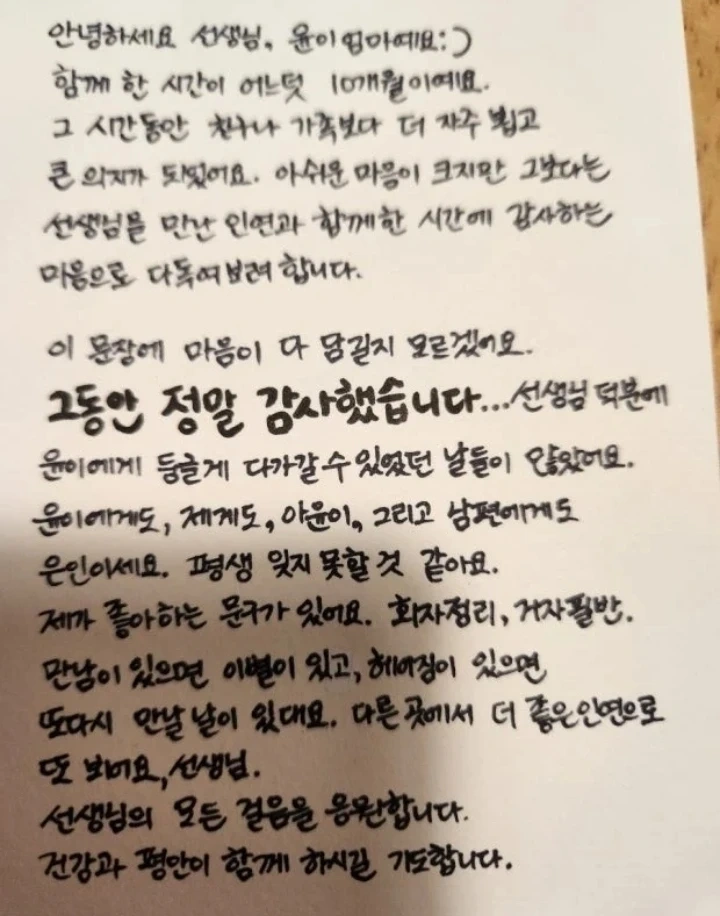 안녕하세요 선생님, 윤이 엄마예요:)
함께 한 시간이 어느덧 10개월이예요.
그 시간동안 친구나 가족보다 더 자주 뵙고
큰 의지가 되었어요. 아쉬운 마음이 크지만 그보다는
선생님을 만난 인연과 함께한 시간에 감사하는
마음으로 다독여보려 합니다.
이 문장에 마음이 다 담길지 모르겠어요.
그동안 정말 감사했습니다...선생님 덕분에
윤이에게 둥글게 다가갈 수 있었던 날들이 많았어요.
윤이에게도, 제게도, 아윤이, 그리고 남편에게도
은인이세요. 평생 잊지 못할 것 같아요.
제가 좋아하는 문구가 있어요. 회자정리, 거자필반.
만남이 있으면 이별이 있고, 헤어짐이 있으면
또다시 만날 날이 있대요. 다른 곳에서 더 좋은인연으로
또 보아요, 선생님.
선생님의 모든 걸음을 응원합니다.
건강과 평안이 함께 하시길 기도합니다.